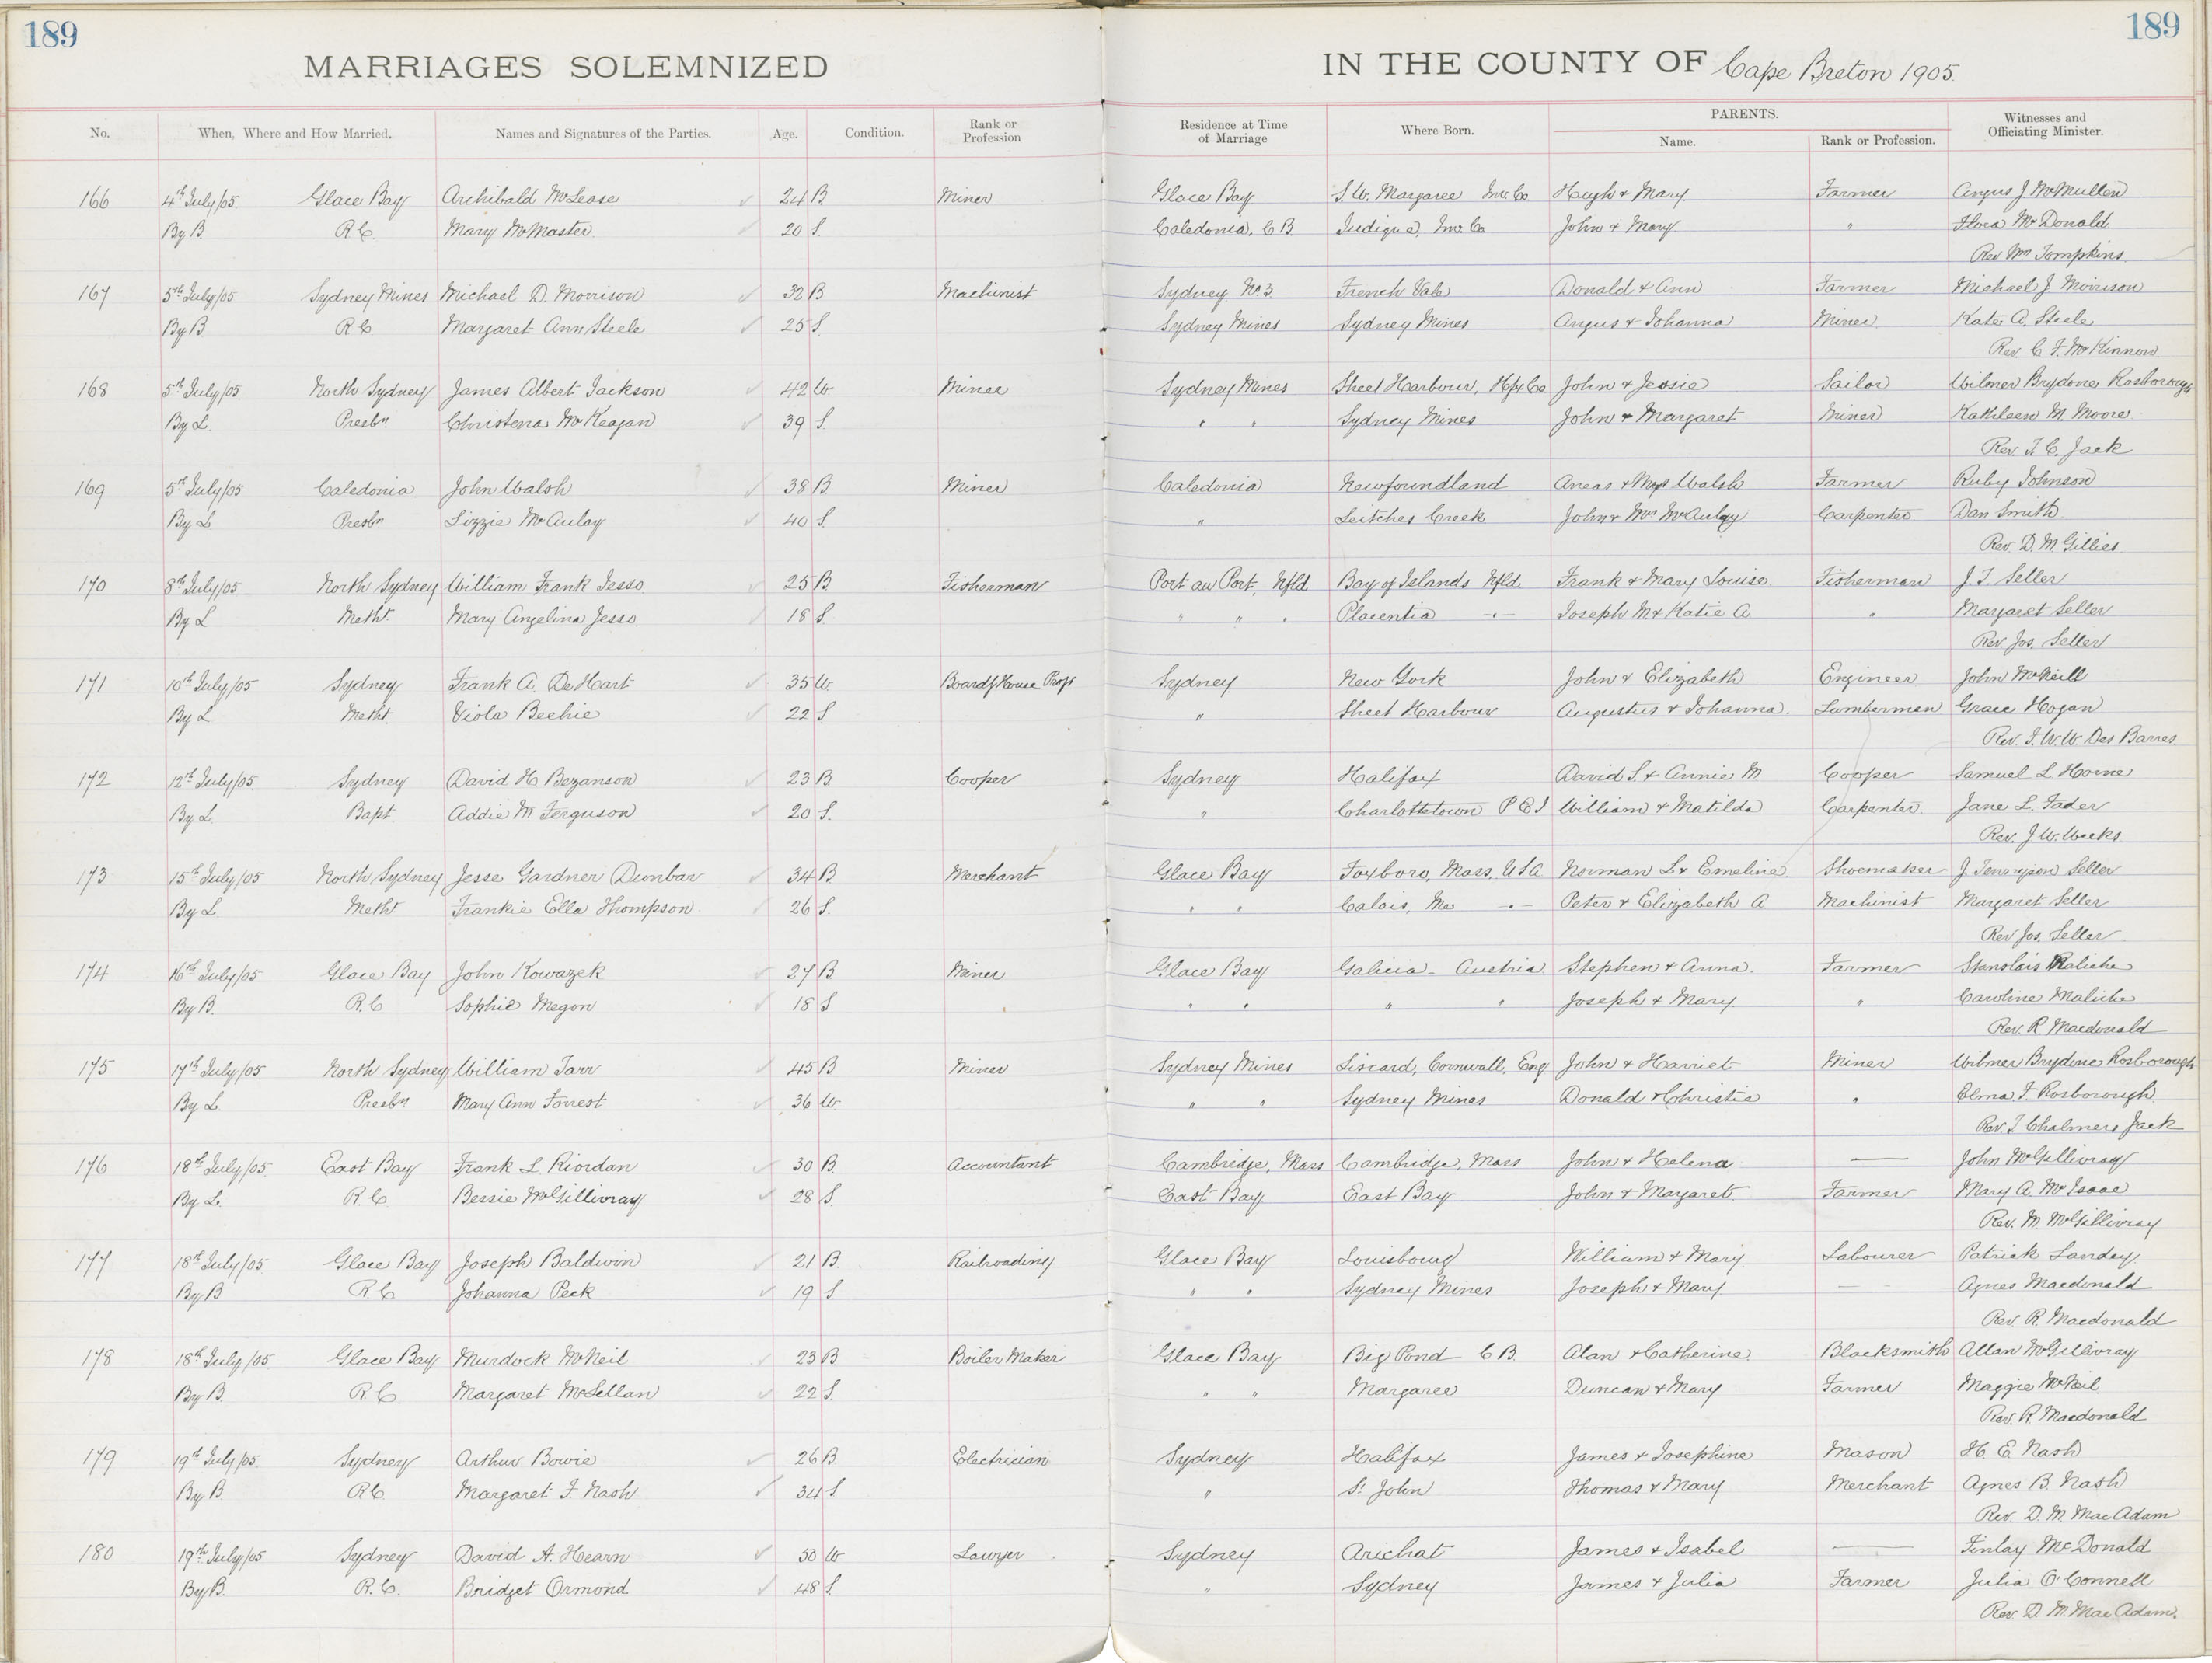 189
189
MARRIAGES SOLEMNIZED IN THE COUNTY OF Cape Breton 1905.
No. When, Where and How Married. Names and Signatures of the Parties. Age. Condition. Rank or Profession Residence at Time of Marriage Where Born. PARENTS. Name. Rank or Profession. Witnesses and Officiating Minister.
166 4th July/05 Glace Bay Archibald McLease 24 B Miner Glace Bay S.W. Margaree Inv. Co Hugh & Mary Farmer Angus J McMullen
By B. R.C. Mary McMaster 20 S. Caledonia, C B. Judique, Inv. Co John & Mary " Flora McDonald
Rev Wm Tompkins
167 5th July/05 Sydney Mines Michael D. Morrison 32 B Machinist Sydney No. 3 French Vale Donald & Ann Farmer Michael J Morrison
By B. R C. Margaret Ann Steele 25 S. Sydney Mines Sydney Mines Angus & Johanna Miner Kate A. Steele
Rev. C. F. McKinnon.
168 5th July/05 North Sydney James Albert Jackson 42 W. Miner Sydney Mines Sheet Harbour, Hfx Co John & Jessie Sailor Wilmer Brydone Rosborough
By L. Presbn Christena McKeagan 39 S. " " Sydney Mines John & Margaret Miner Kathleen M. Moore
Rev. T. C. Jack
169 5th July/05 Caledonia John Walsh 38 B. Miner Caledonia Newfoundland Aneas & Mrs Walsh Farmer Ruby Johnson
By L Presbn Lizzie McAulay 40 S. " Leitches Creek John & Mrs McAulay Carpenter Dan Smith
Rev. D. M Gillies
170 8th July/05 North Sydney William Frank Jesso 25 B Fisherman Port au Port, Nfld. Bay of Islands Nfld. Frank & Mary Louise Fisherman J. T. Seller
By L Metht. Mary Angelina Jesso 18 S. " " " Placentia -"- Joseph M. & Katie A " Margaret Seller
Rev. Jos. Seller
171 10th July/05 Sydney Frank A. DeHart 35 W. Boardg House Propr Sydney New York John & Elizabeth Engineer John McNeill
By L Metht. Viola Beehie 22 S " Sheet Harbour Augustus & Johanna. Lumberman Grace Hogan
Rev. F. W. W. Des Barres.
172 12th July/05. Sydney David H. Bezanson 23 B. Cooper Sydney Halifax David S. & Annie M Cooper Samuel L Horne
By L. Bapt. Addie M Ferguson 20 S. " Charlottetown P E I William & Matilda Carpenter. Jane L. Fader
Rev. J. W. Weeks
173 15th July/05 North Sydney Jesse Gardner Dunbar 34 B Merchant Glace Bay Foxboro, Mass, U S A Norman L & Emeline Shoemaker J. Tennyson Seller
By L. Metht Frankie Ella Thompson 26 S. " " Calais, Me -"- Peter & Elizabeth A Machinist Margaret Seller
Rev Jos. Seller
174 16th July/05 Glace Bay John Kowazek 27 B. Miner Glace Bay Galicia - Austria Stephen & Anna. Farmer Stanslais Maliche
By B. R.C Sophie Megon 18 S " " " " Joseph & Mary " Caroline Maliche
Rev. R. Macdonald
175 17th July/05 North Sydney William Tarr 45 B Miner Sydney Mines Liscard, Cornwall, Eng John & Harriet Miner Wilmer Brydone Rosborough
By L. Presbn Mary Ann Forrest 36 W. " " Sydney Mines Donald & Christie " Elma F. Rosborough
Rev. T. Chalmers Jack
176 18th July/05. East Bay Frank L Riordan 30 B. Accountant Cambridge, Mass Cambridge, Mass John & Helena — John McGillivray
By L. R.C. Bessie McGillivray 28 S. East Bay East Bay John & Margaret. Farmer Mary A. McIsaac
Rev. M McGillivray
177 18th July/05 Glace Bay Joseph Baldwin 21 B. Railroading Glace Bay Louisbourg William & Mary Labourer Patrick Landry
By B R.C Johanna Peck 19 S. " " Sydney Mines Joseph & Mary — Agnes Macdonald
Rev. R. Macdonald
178 18th July/05 Glace Bay Murdock McNeil 23 B Boiler Maker Glace Bay Big Pond C B. Alan & Catherine Blacksmith Allan McGillivray
By B R.C Margaret McLellan 22 S. " " Margaree Duncan & Mary Farmer Maggie McNeil
Rev. R Macdonald
179 19th July/05 Sydney Arthur Bowie 26 B Electrician Sydney Halifax James & Josephine Mason H. E. Nash
By B. R.C. Margaret F. Nash 34 S " St John Thomas & Mary Merchant Agnes B. Nash
Rev. D. M. MacAdam
180 19th July/05 Sydney David A. Hearn 50 W Lawyer Sydney Arichat James & Isabel — Finlay McDonald
By B. R.C. Bridget Ormond 48 S. " Sydney James & Julia Farmer Julia O'Connell
Rev. D. M. MacAdam.